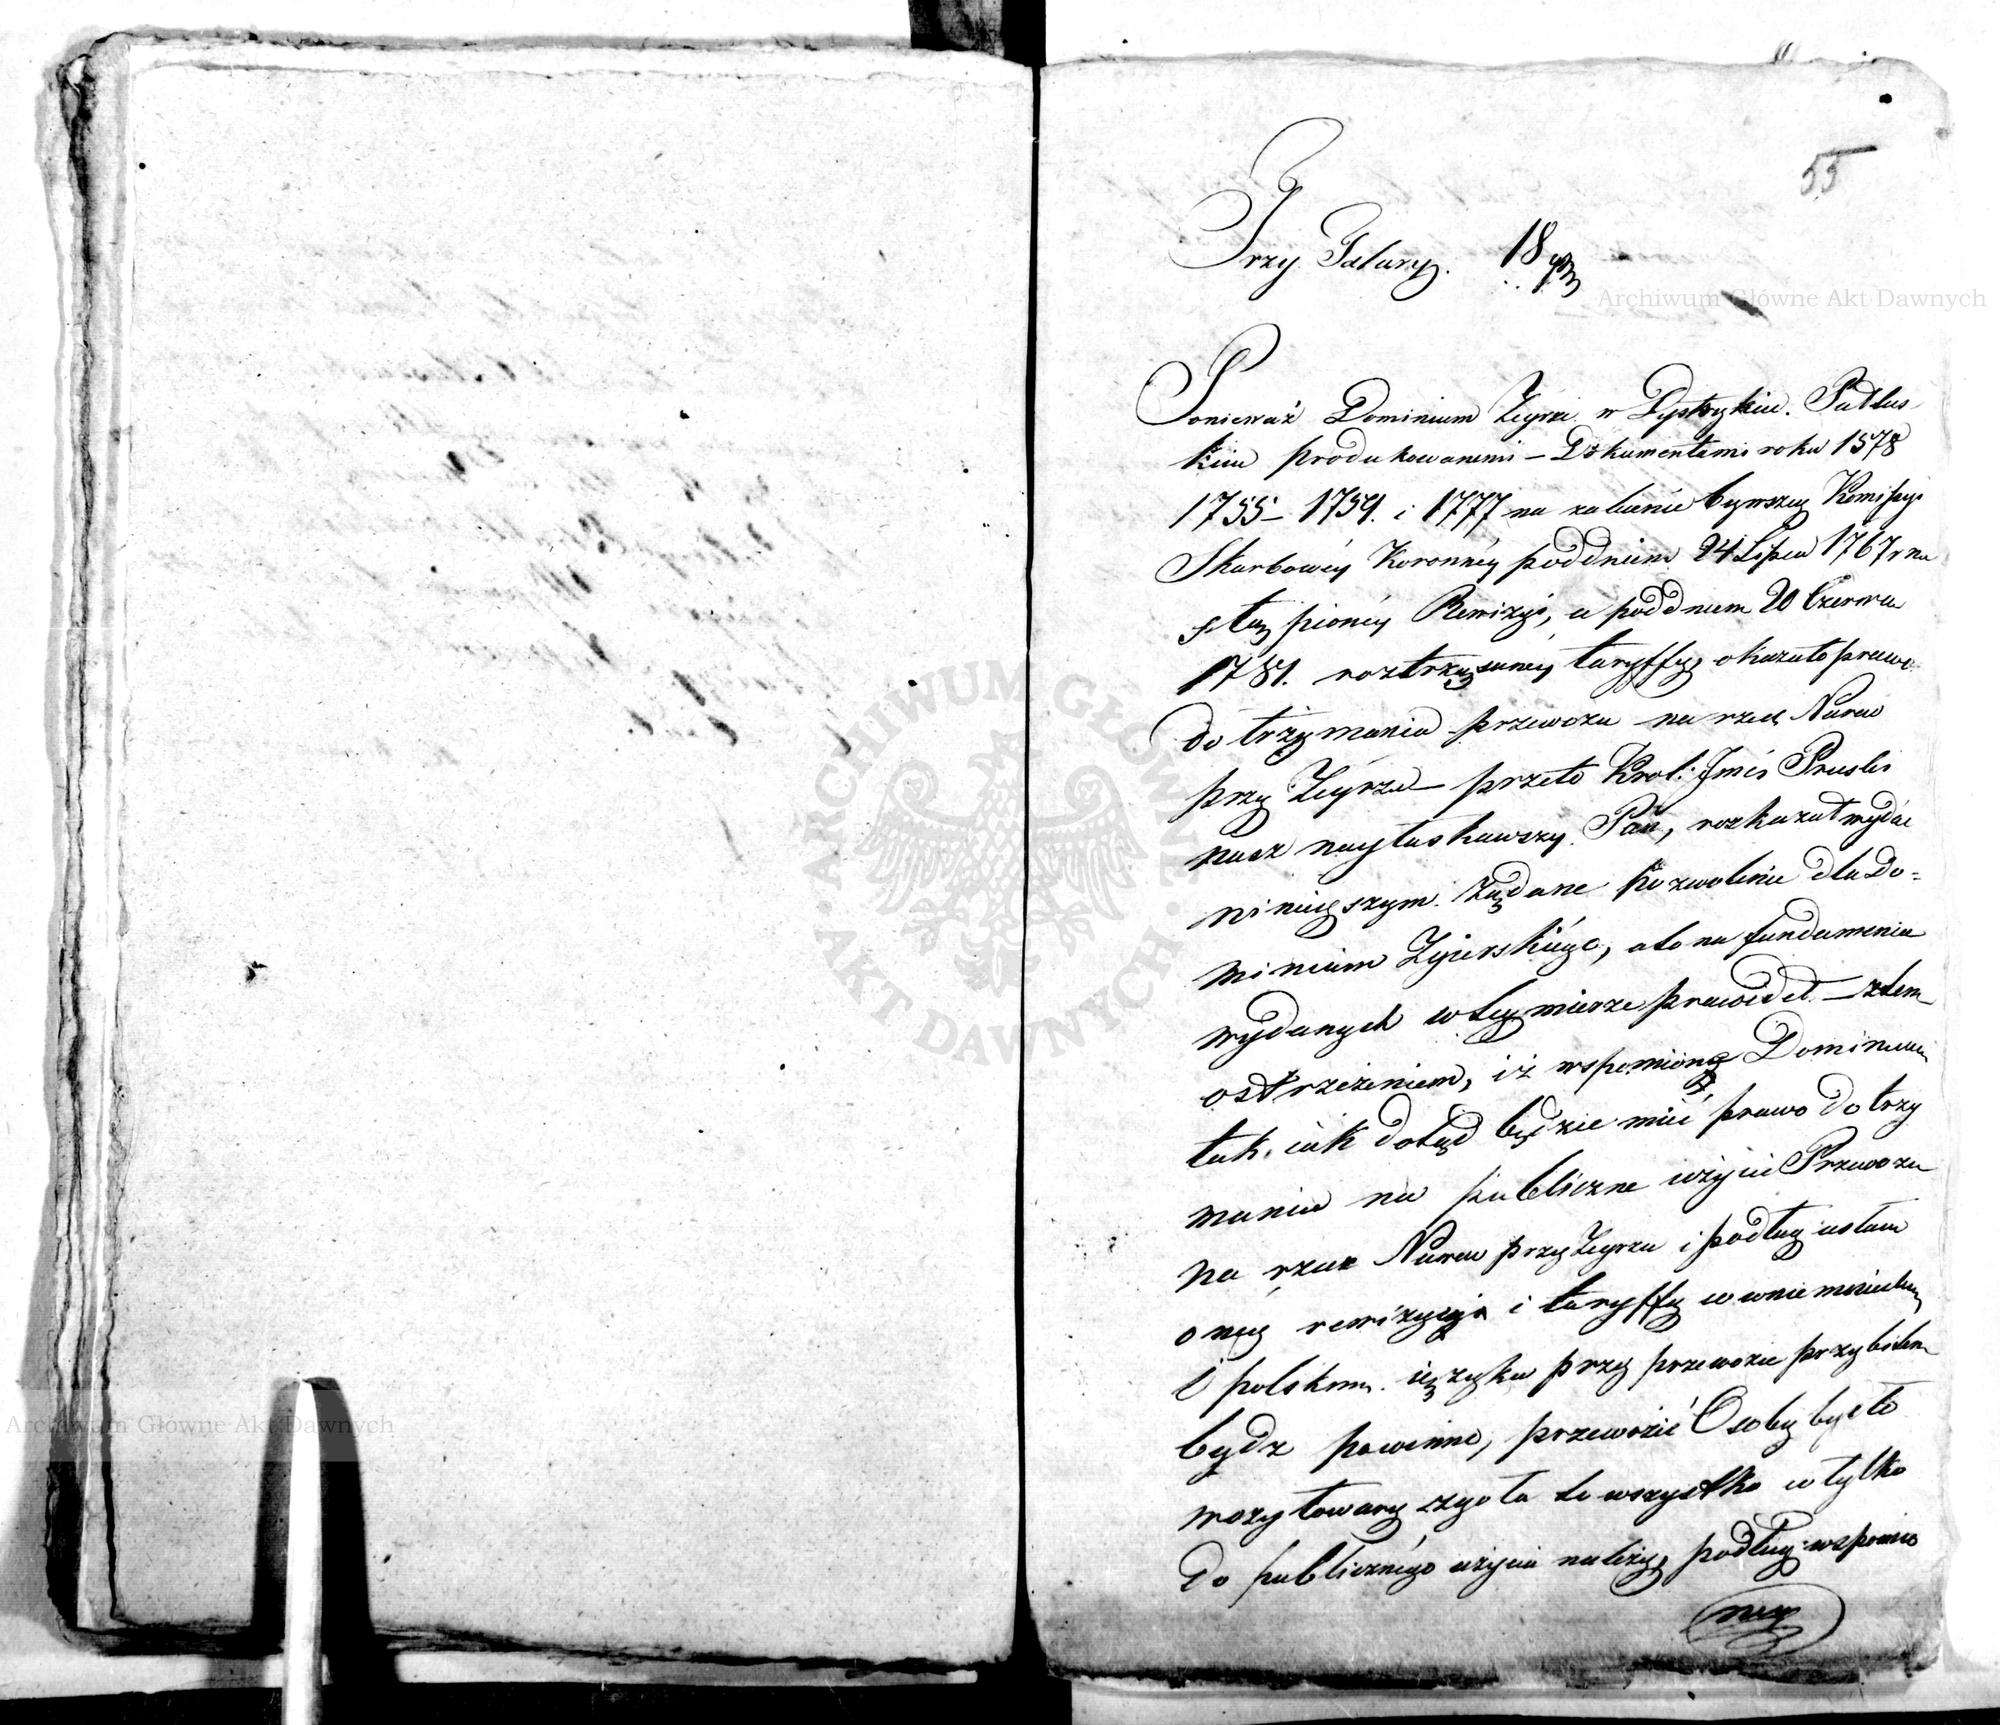 55
Trzy Talary. 18
Archiwum Główne Akt Dawnych
Ponieważ Dominium Zegrze w Dystrykcie Pułtus-
kim produkowanemi – Dokumentami roku 1578
1755 – 1759. i 1777 na zalecenie bywszey Komissyi
Skarbowéy Koronnéy pod dniem 24 Lipca 1767 r na
stąpionéy Rewizyi, a pod dniem 20 Czerwca
1781. roztrząsaney taryffy, okazało prawo
do trzymania przewozu na rzece Narew
przy Zegrzu – przeto Krol: Jmść Pruski
nasz nayłaskawszy Pan, rozkazał wydać
ninieyszym żądane pozwolenie dla Do=
minium Zgierskiégo, a to na fundamencie
wydanych w tey mierze prawideł – z tem
ostrzeżeniem, iż wspomione Dominium
tak iak dotąd będzie mieć prawo do trzy
mania na publiczne użycie Przewozu
na rzece Narew przy Zegrzu i podług ustaw
oney rewizyi i taryffy w niemieckim
i polskim ięzyku przy przewozie przybitem
bydz powinno, przewozić Osoby bydło
wozy towary zgoła to wszystko co tylko
do publicznégo użycia należy, podług wspomio
ney
ARCHIWUM GŁÓWNE AKT DAWNYCH
Archiwum Główne Akt Dawnych